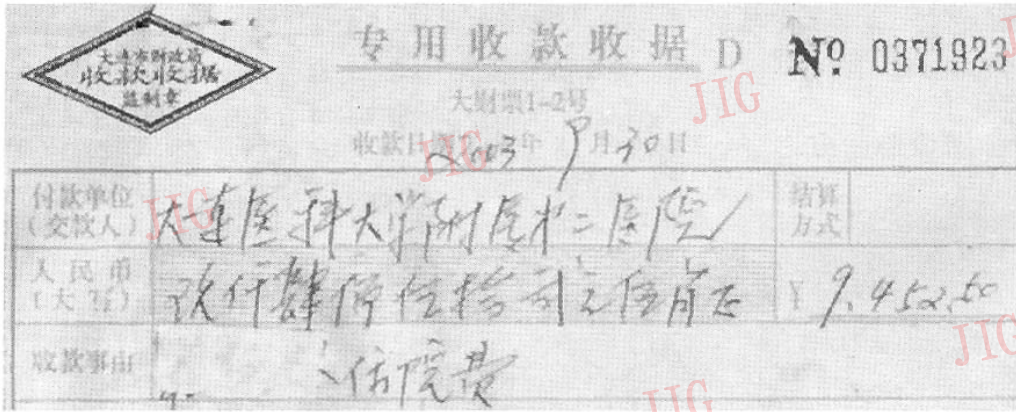 大连市财政局
收款收据
监制章
专用收款收据 D № 0371923
大财票1-2号
收款日期 2003年 9月30日
付款单位
(交款人)
大连医科大学附属第二医院
结算
方式
人民币
(大写)
玖仟肆佰伍拾贰元伍角正
¥ 9.452.50
收款事由
住院费
JIG
JIG
JIG
JIG
JIG